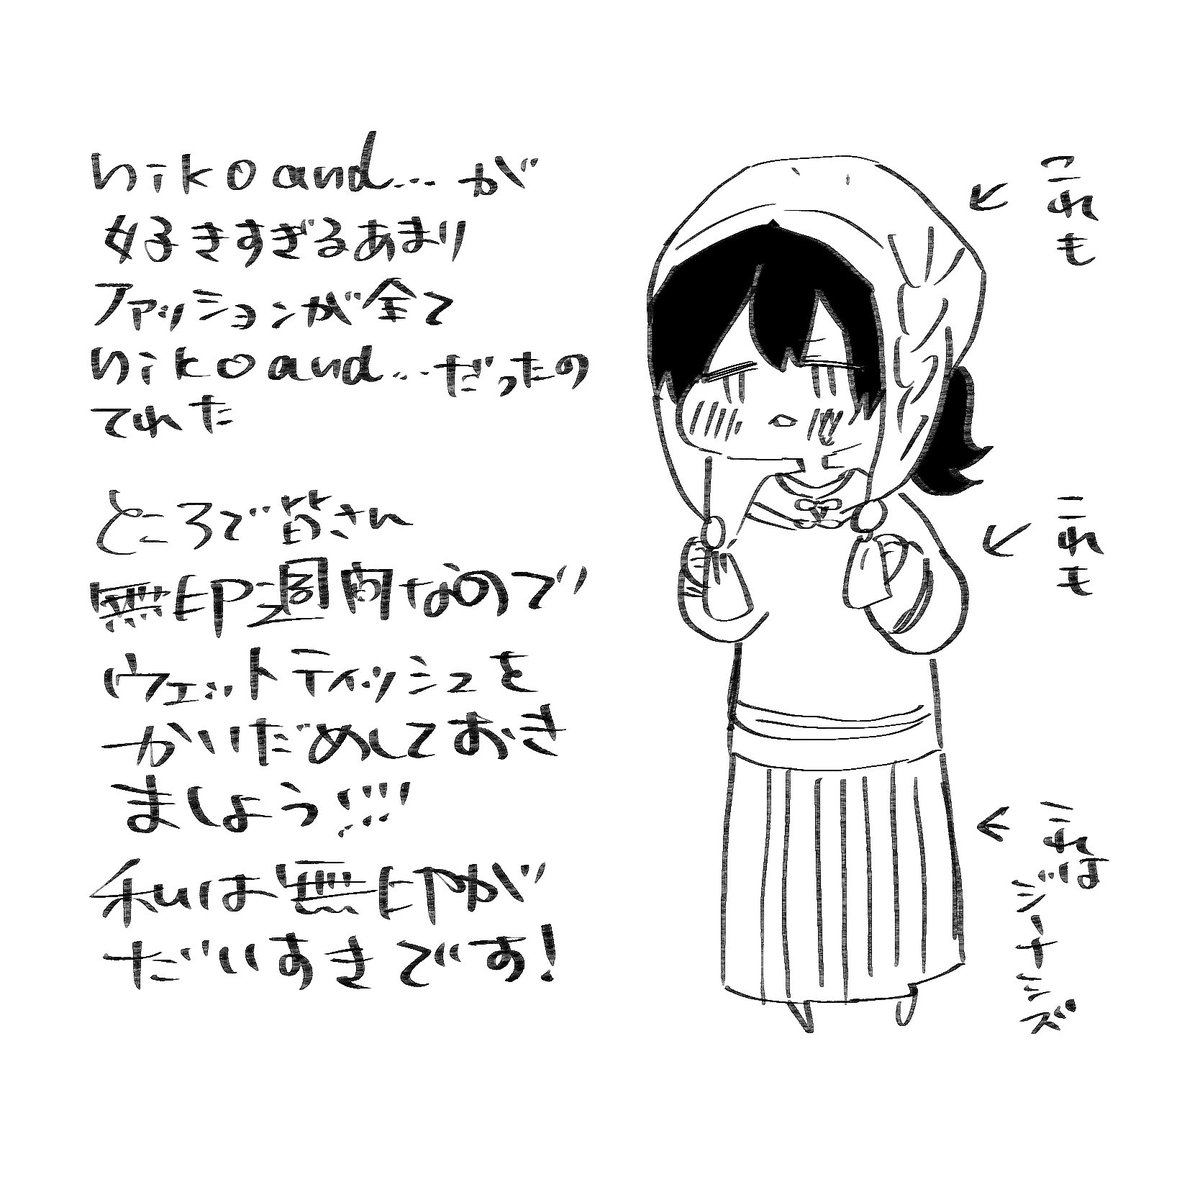 niko and...が
好きすぎるあまり
ファッションが全て
niko and...だったの
てれた
ところで皆さん
無印週間なので
ウェットティッシュを
かいだめしておき
ましょう!!!
私は無印やが
だいすきです!
これも
これも
これは
ジーナシス゛